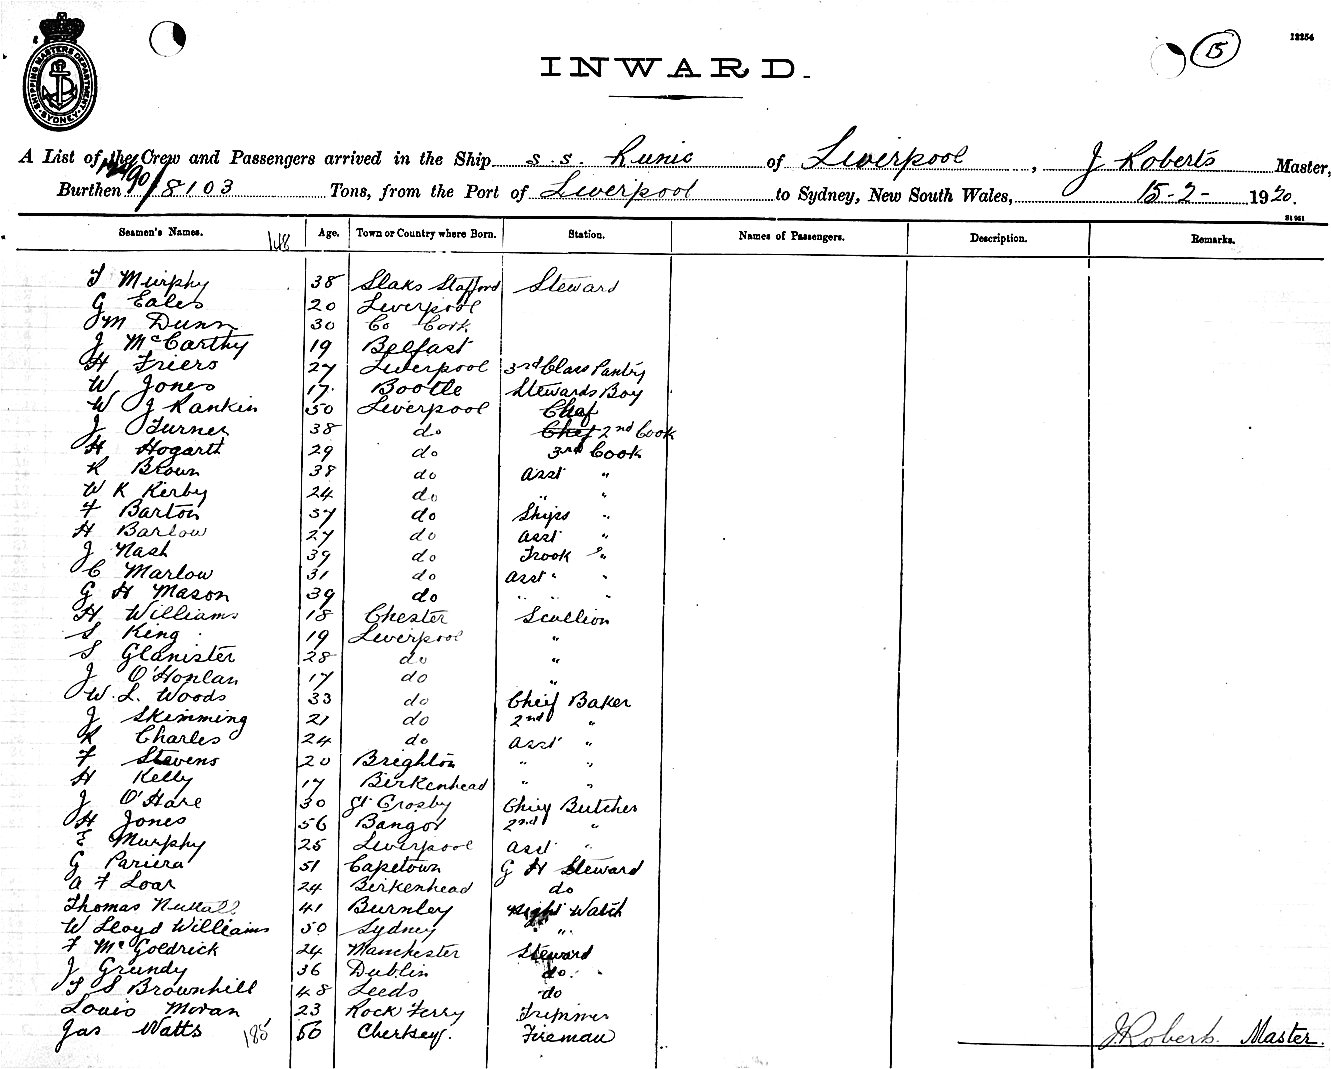 SHIPPING MASTERS DEPARTMENT SYDNEY
15
12254
INWARD.
A List of the Crew and Passengers arrived in the Ship s.s. Runic of Liverpool, J Roberts Master,
Burthen 8103 Tons, from the Port of Liverpool to Sydney, New South Wales, 15-2- 1920.
Seamen's Names. 148 Age. Town or Country where Born. Station. Names of Passengers. Description. Remarks.
T Murphy 38 Slaks Stafford Steward
G Eales 20 Liverpool
M Dunn 30 Co Cork
J McCarthy 19 Belfast
H Friers 27 Liverpool 3rd Class Pantry
W Jones 17 Bootle Stewards Boy
W J Rankin 50 Liverpool Chef
J Turner 38 do Chef 2nd Cook
H Hogarth 29 do 3rd Cook
R Brown 38 do Asst "
W K Kerby 24 do " "
F Barton 37 do Ships "
H Barlow 27 do Asst "
J Nash 39 do Trook "
C Marlow 31 do Asst " "
G H Mason 39 do " " "
H Williams 18 Chester Scullion
S King 19 Liverpool "
S Glanister 28 do "
J O'Honlan 17 do "
W. L. Woods 33 do Chief Baker
J Skimming 21 do 2nd "
R Charles 24 do Asst "
F Stevens 20 Brighton " "
H Kelly 17 Birkenhead " "
J O'Hare 30 Gt Crosby Chief Butcher
H Jones 56 Bangor 2nd "
E Murphy 25 Liverpool Asst "
G Pariera 51 Capetown G H Steward
A F Loar 24 Birkenhead do
Thomas Nuttall 41 Burnley Night Watch
W Lloyd Williams 50 Sydney "
F McGoldrick 24 Manchester Steward
J Grundy 36 Dublin do
T S Brownhill 48 Leeds do
Louis Moran 23 Rock Ferry Trimmer
Jas Watts 185 50 Chertsey. Fireman
J. Roberts. Master.